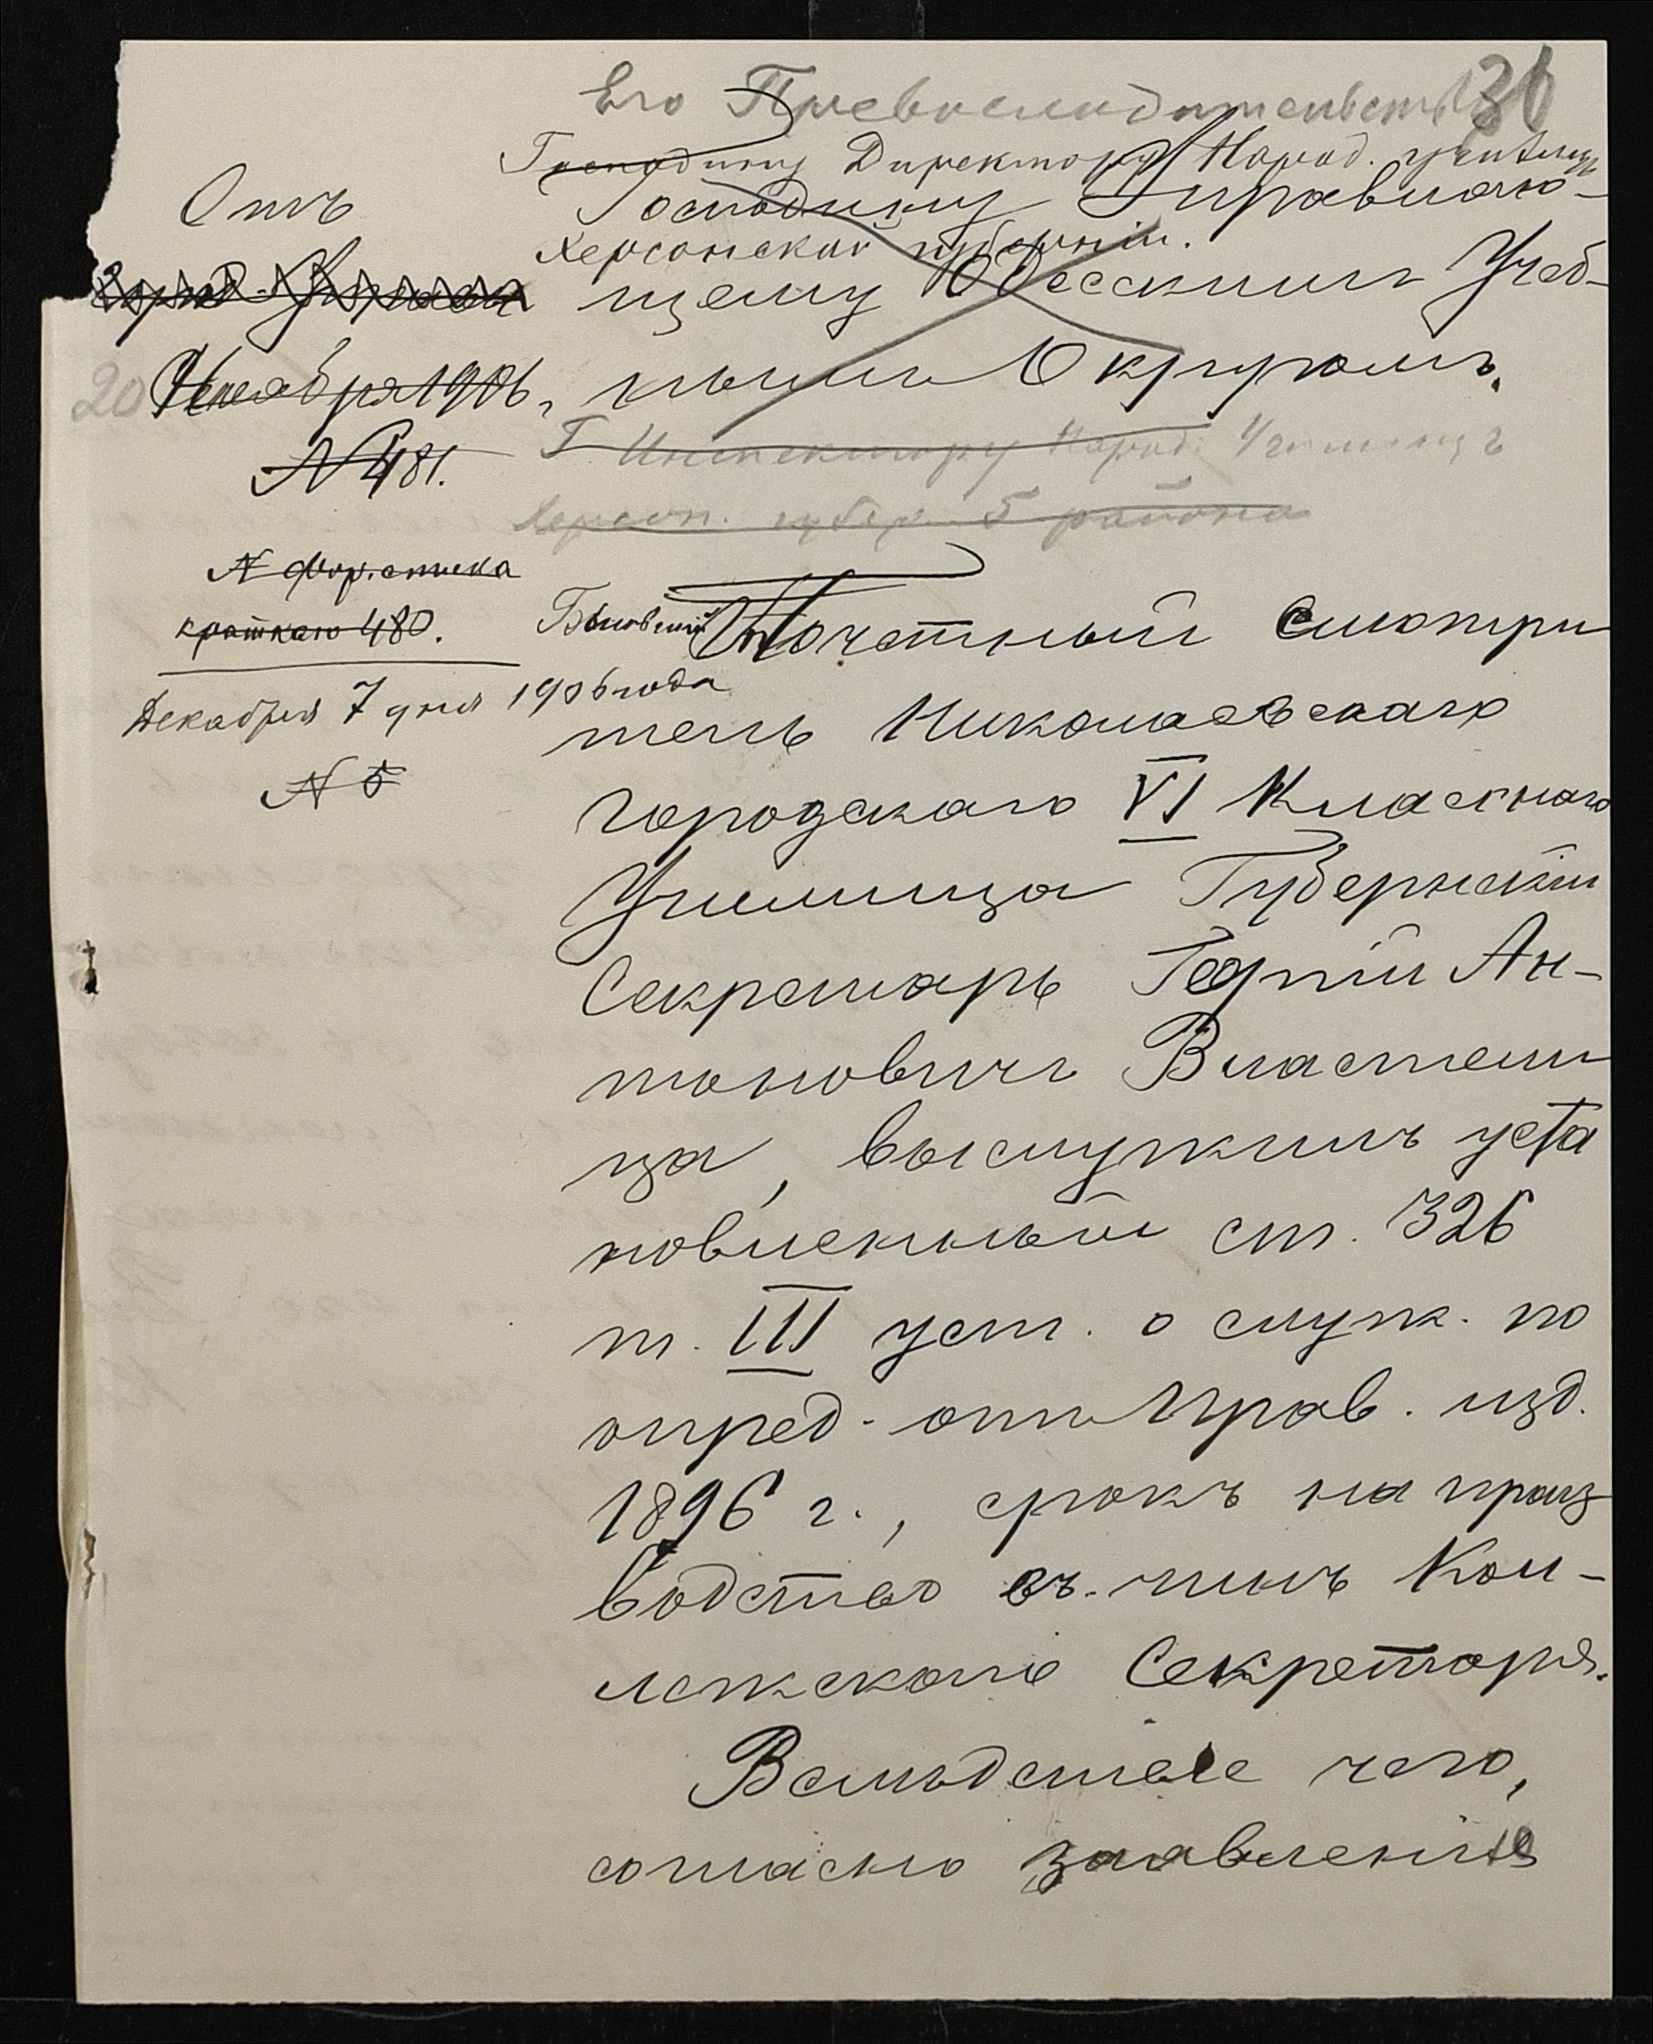 Его Превосходительству 36
Господину Директору Народ. училищъ
Господину Управляю-
Херсонской губерніи.
щему Одесскимъ Учеб-
нымъ Округомъ.
Г. Инспектору Народ. Училищъ
Херсон. губер. 5 района
Отъ
20 Ноября 1906,
№ 481.
№ фор. списка
краткаго 480.
Декабря 7 дня 1906 года
№ 5
Бывшій Почетный Смотри
тель Николаевскаго
городскаго VI Класснаго
Училища Губернскій
Секретарь Георгій Ан-
тоновичъ Властели
ца, выслужилъ уста
новленный ст. 326
т. III уст. о служ. по
опред. отъ Прав. изд.
1896 г., срокъ на произ
водство въ чинъ Кол-
лежскаго Секретаря.
Вслѣдствіе чего,
согласно заявленію